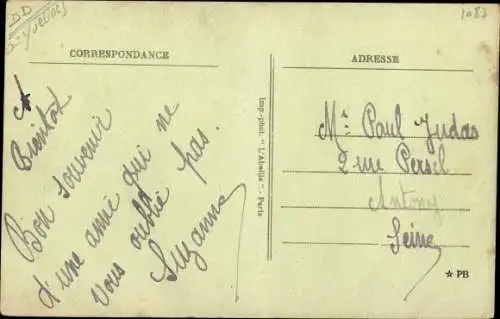 DD
(Yvelines)
1087
CORRESPONDANCE
ADRESSE
A
Bientot
Bon souvenir
d'une amie qui ne
vous oublie pas.
Suzanne
Imp.-phot. "L'Abeille" - Paris
Mr Paul Judas
2 rue Persil
Antony
Seine
☆ PB